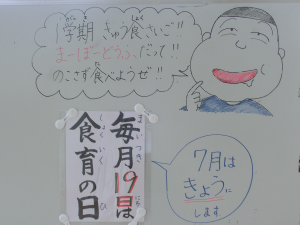 1学期 きゅう食さいご!!
まーぼーどうふだって!!
のこさず食べようぜ!!
毎月19日は
食育の日
7月は
きょうに
します